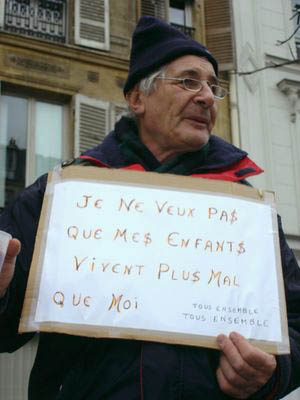 JE NE VEUX PA$
QUE ME$ ENFANT$
VIVENT PLU$ MAL
QUE MOI
TOUS ENSEMBLE
TOUS ENSEMBLE